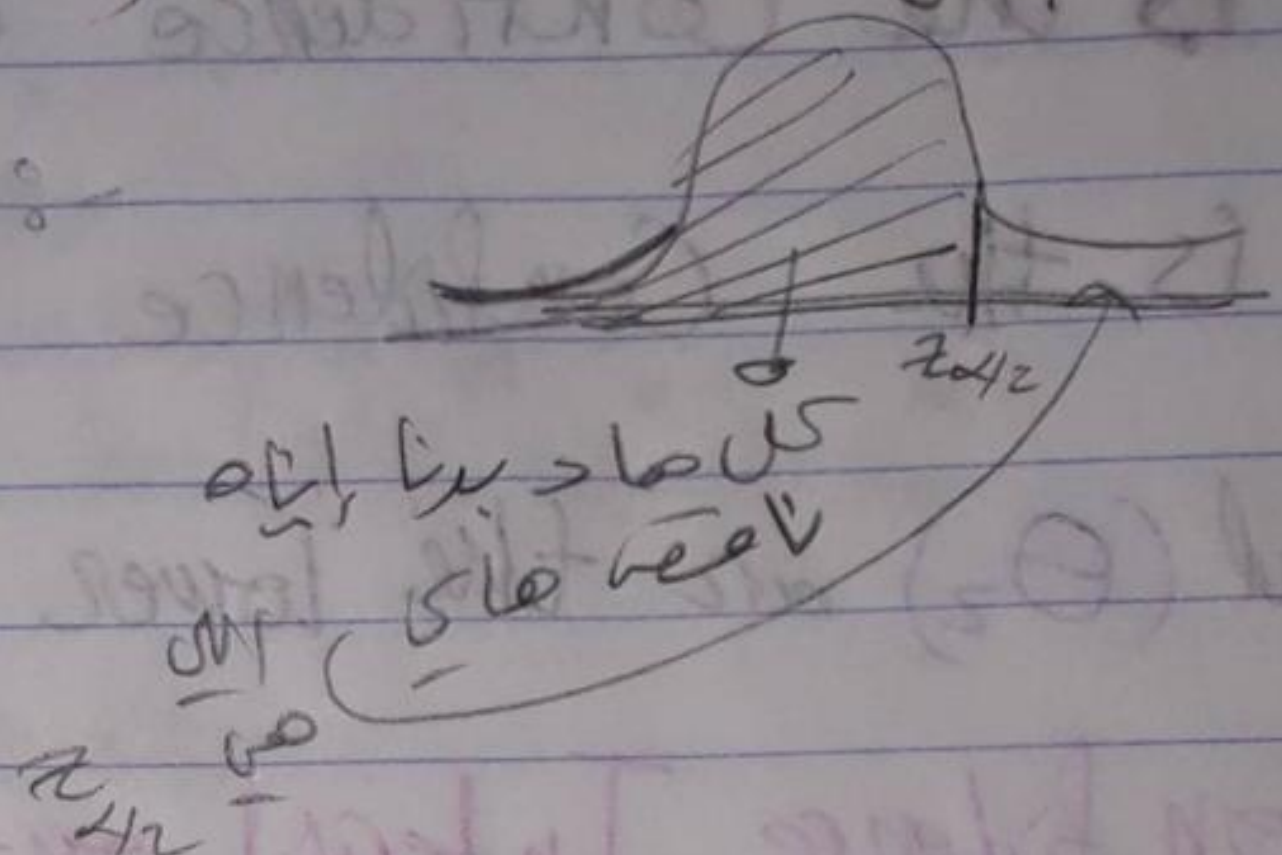 Zα/2
كل هاد بدنا اياه
ناقص هاي
اللي
هي
Zα/2